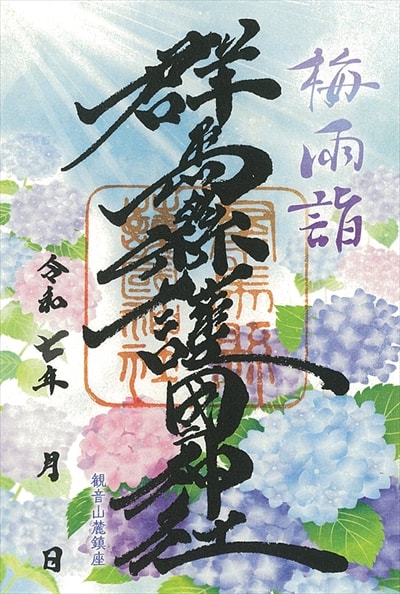 梅雨詣
群馬縣護國神社
令和七年 月 日
観音山麓鎮座